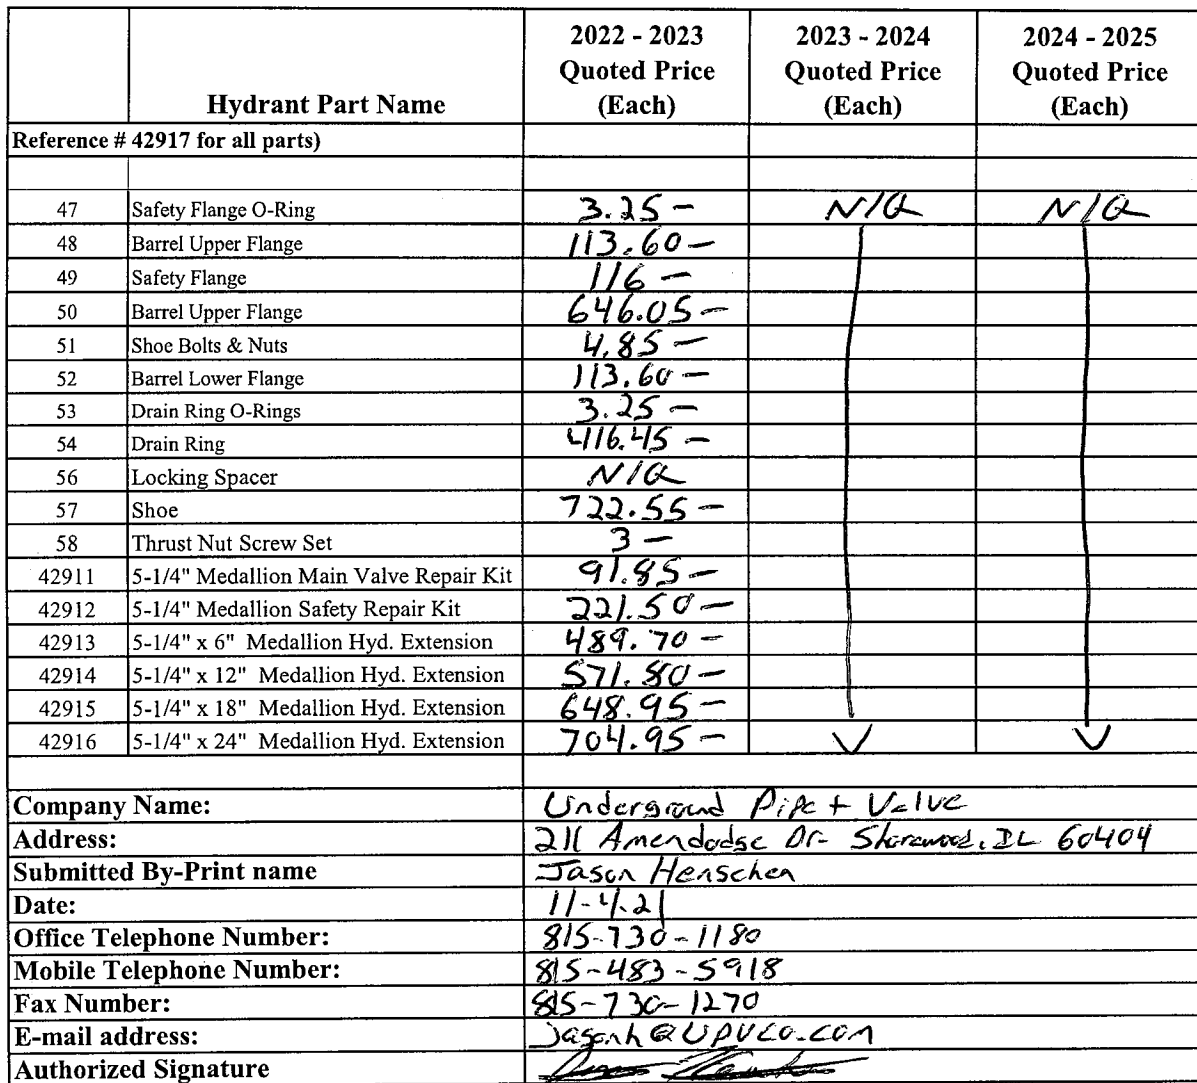 Hydrant Part Name 2022 - 2023 Quoted Price (Each) 2023 - 2024 Quoted Price (Each) 2024 - 2025 Quoted Price (Each)
Reference # 42917 for all parts)
47 Safety Flange O-Ring 3.25 – N/Q N/Q
48 Barrel Upper Flange 113.60 –
49 Safety Flange 116 –
50 Barrel Upper Flange 646.05 –
51 Shoe Bolts & Nuts 4.85 –
52 Barrel Lower Flange 113.60 –
53 Drain Ring O-Rings 3.25 –
54 Drain Ring 416.45 –
56 Locking Spacer N/Q
57 Shoe 722.55 –
58 Thrust Nut Screw Set 3 –
42911 5-1/4" Medallion Main Valve Repair Kit 91.85 –
42912 5-1/4" Medallion Safety Repair Kit 221.50 –
42913 5-1/4" x 6" Medallion Hyd. Extension 489.70 –
42914 5-1/4" x 12" Medallion Hyd. Extension 571.80 –
42915 5-1/4" x 18" Medallion Hyd. Extension 648.95 –
42916 5-1/4" x 24" Medallion Hyd. Extension 704.95 –
Company Name: Underground Pipe + Valve
Address: 211 Amendodge Dr- Shorewood, IL 60404
Submitted By-Print name Jason Henschen
Date: 11-4-21
Office Telephone Number: 815-730-1180
Mobile Telephone Number: 815-483-5918
Fax Number: 815-730-1270
E-mail address: jasonh@UPVCO.com
Authorized Signature